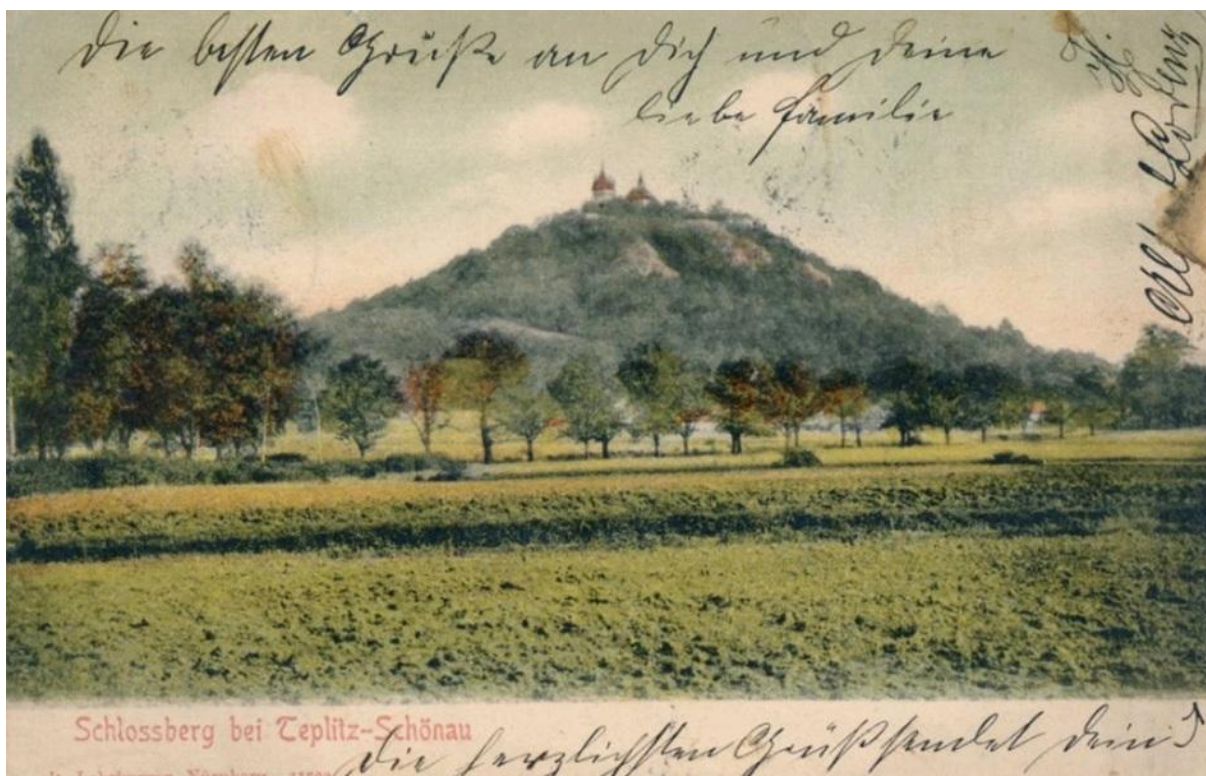 Die besten Grüße an Dich und Deine
liebe Familie
Schlossberg bei Teplitz-Schönau
Nürnberg
Die herzlichsten Grüß sendet Dein